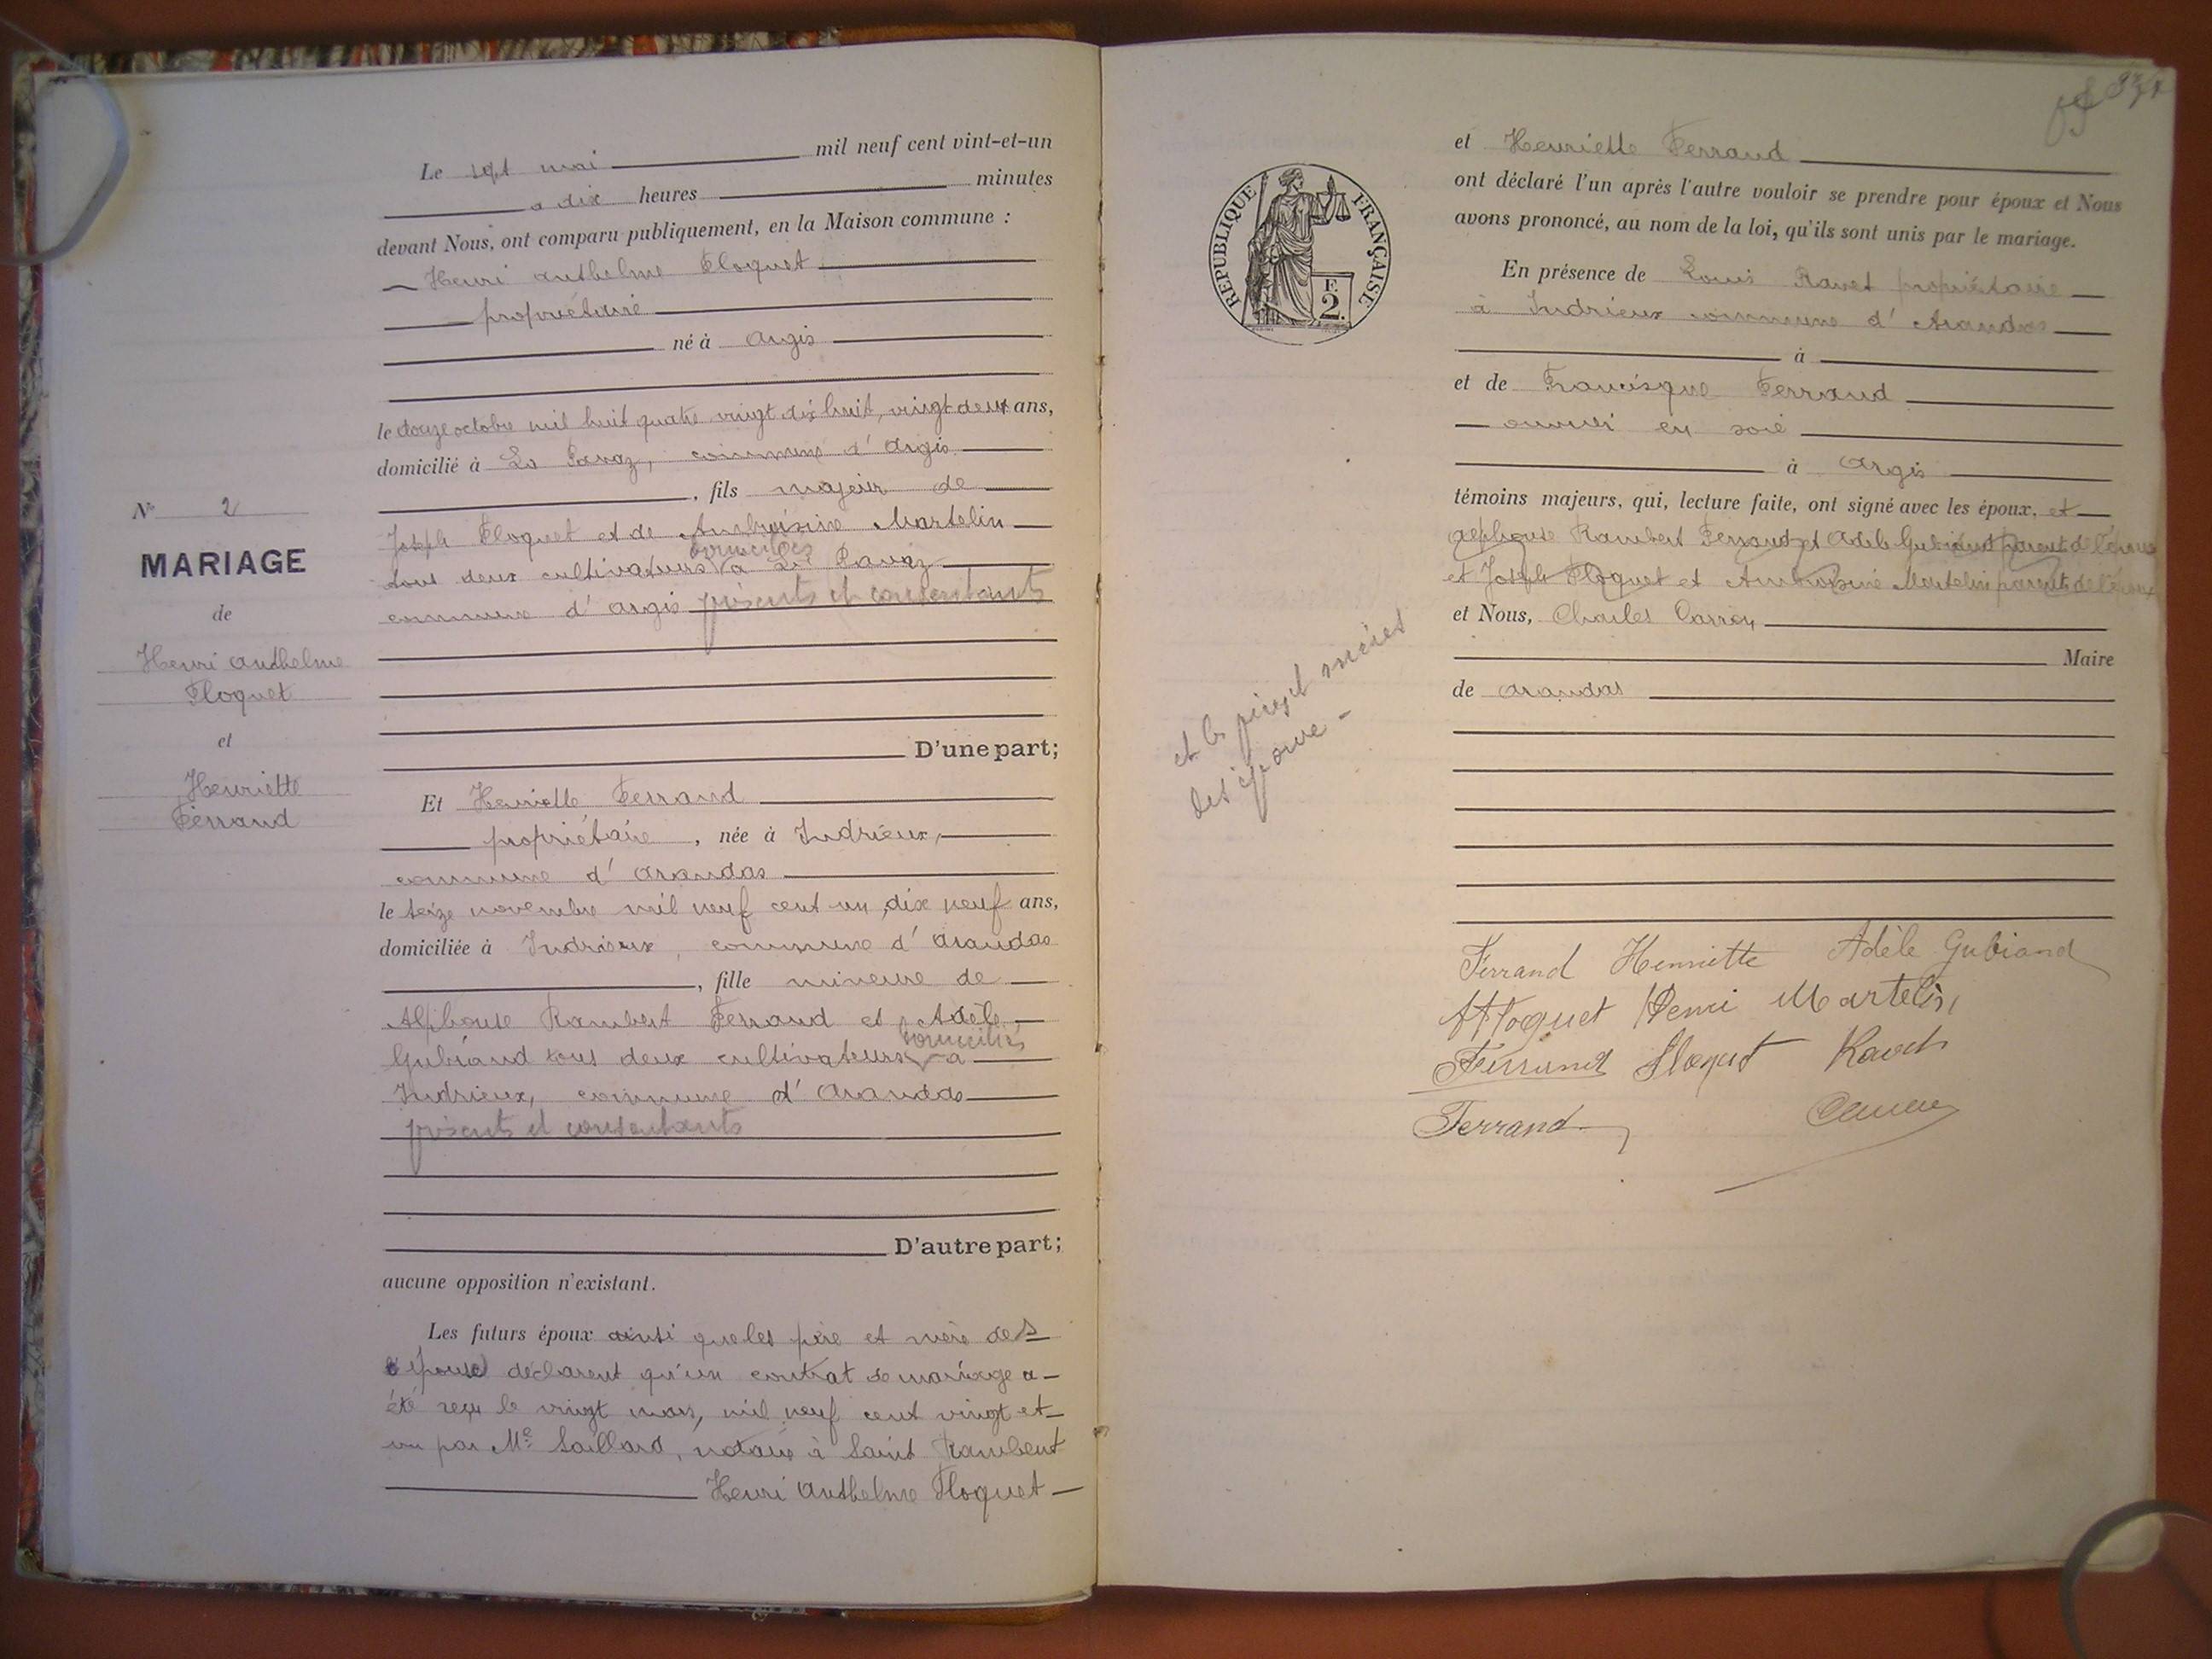 N° 2
MARIAGE
de
Henri Anthelme
Floquet
et
Henriette
Ferrand
Le sept mai mil neuf cent vint-et-un
à dix heures minutes
devant Nous, ont comparu publiquement, en la Maison commune :
Henri Anthelme Floquet
propriétaire
né à Argis
le douze octobre mil huit quatre vingt dix huit, vingt deux ans,
domicilié à La commune d'Argis
, fils majeur de
Joseph Floquet et de Ambroisine Martelin
domiciliés
tous deux cultivateurs à La
commune d'Argis présents et consentants
D'une part;
Et Henriette Ferrand
propriétaire, née à Indrieux,
commune d'Arandas
le seize novembre mil neuf cent un, dix neuf ans,
domiciliée à Indrieux, commune d'Arandas
, fille mineure de
Alphonse Rambert Ferrand et Adèle
domiciliés
Gubiand tous deux cultivateurs à
Indrieux, commune d'Arandas
présents et consentants
D'autre part;
aucune opposition n'existant.
Les futurs époux ainsi que les père et mère des
épouse déclarent qu'un contrat de mariage a
été reçu le vingt mars, mil neuf cent vingt et
un par Me Saillard, notaire à Saint Rambert
Henri Anthelme Floquet
REPUBLIQUE FRANÇAISE
F.
2.
et Henriette Ferrand
ont déclaré l'un après l'autre vouloir se prendre pour époux et Nous
avons prononcé, au nom de la loi, qu'ils sont unis par le mariage.
En présence de Louis Ravet propriétaire
à Indrieux commune d'Arandas
à
et de Francisque Ferrand
ouvrier en soie
à Argis
témoins majeurs, qui, lecture faite, ont signé avec les époux, et
Alphonse Rambert Ferrand et Adèle Gubiand parents de l'épouse
et Joseph Floquet et Ambroisine Martelin parents de l'époux
et Nous, Charles Carrey
Maire
de Arandas
et les pères et mères
des époux
Ferrand Henriette Adèle Gubiand
Floquet Henri Martelin
Ferrand Floquet Ravet
Ferrand